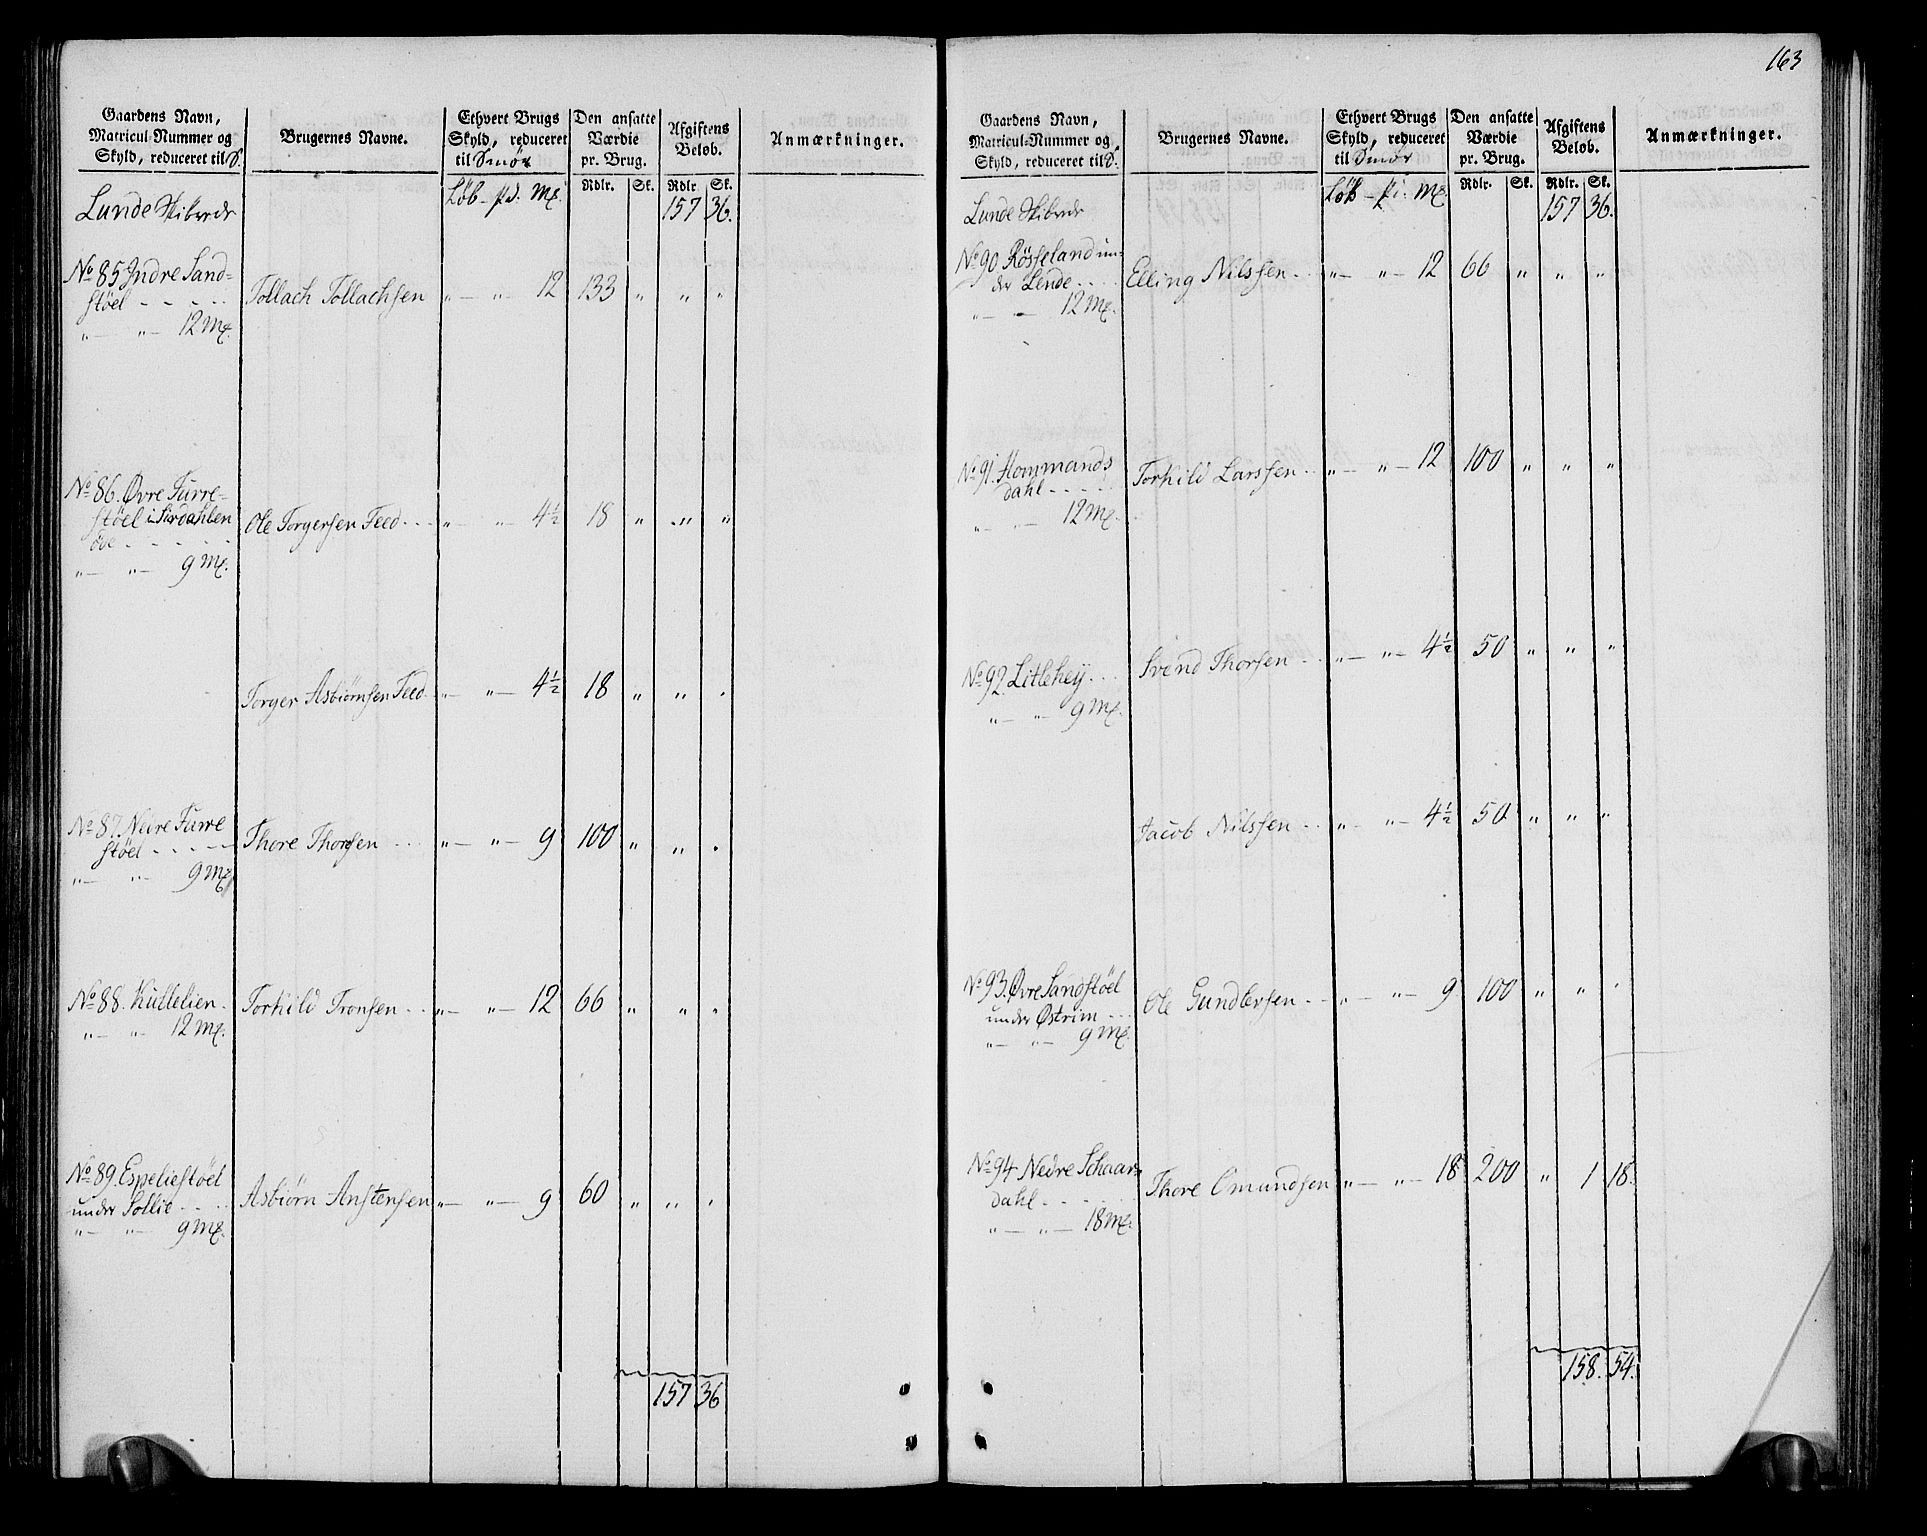 163
Gaardens Navn,
Matricul-Nummer og
Skyld, reduceret til S.
Brugernes Navne.
Ethvert Brugs
Skyld, reduceret
til Smör
Den ansatte
Værdie
pr. Brug.
Afgiftens
Beløb.
Anmærkninger.
Løb - pd. mk
Rdlr. Sk. Rdlr. Sk.
Lunde Skibrede 157 36.
No 85 Indre Sand-
støel - - - - - Tollach Tollachsen „ — „ — 12 133 „ „ „
„ — „ — 12 mk.
No 86. Øvre Furre-
støel i Sirdahlen Ole Torgersen Feed - - - „ — „ — 4½ 18 „ „ „
øde - - - - -
„ — „ — 9 mk.
Torger Asbiørnsen Feed „ — „ — 4½ 18 „ „ „
No 87. Nedre Furre
støel - - - - - Thore Thorsen - - - „ — „ — 9 100 „ „ „
„ — „ — 9 mk
No 88. Kullelien - Torkild Tronsen - - „ — „ — 12 66 „ „ „
„ — „ — 12 mk.
No 89. Espeliestøel
under Sollie - - - Asbiørn Anstensen „ — „ — 9 60 „ „ „
„ — „ — 9 mk.
157 36
Gaardens Navn,
Matricul-Nummer og
Skyld, reduceret til S.
Brugernes Navne.
Ethvert Brugs
Skyld, reduceret
til Smör
Den ansatte
Værdie
pr. Brug.
Afgiftens
Beløb.
Anmærkninger.
Løb - pd. mk
Rdlr. Sk. Rdlr. Sk.
Lunde Skibrede 157 36.
No 90 Røsseland un-
der Lende - - - Elling Nilssen - - „ — „ — 12 66 „ „ „
„ — — 12 mk.
No 91. Hommands
dahl - - - - - Torkild Larssen - - „ — „ — 12 100 „ „ „
„ — „ — 12 mk.
No 92. Litlehey - - - Svend Thorsen - - „ — „ — 4½ 50 „ „ „
„ — „ — 9 mk.
Jacob Nilssen - - „ — „ — 4½ 50 „ „ „
No 93. Øvre Sandstøel
under Østrim - - - Ole Gundlersen - - „ — „ — 9 100 „ „ „
„ — „ — 9 mk.
No 94 Nedre Schaar-
dahl - - - - - Thore Omundsen „ — „ — 18 200 „ 1 18.
„ — „ — 18 mk.
158. 54.